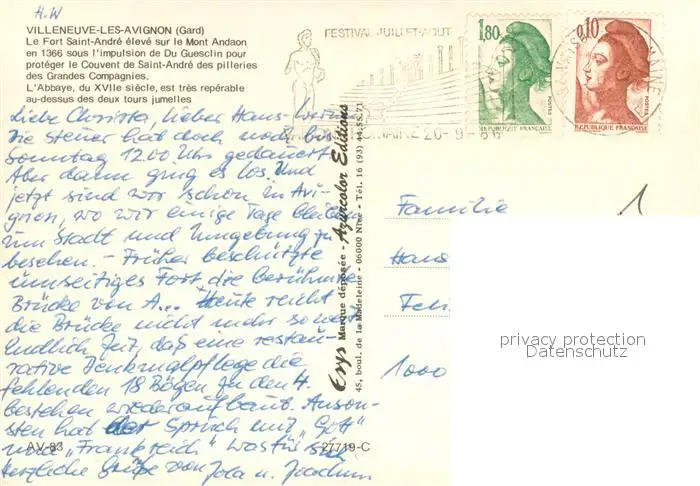 H.W
VILLENEUVE-LES-AVIGNON (Gard)
Le Fort Saint-André élevé sur le Mont Andaon
en 1366 sous l'impulsion de Du Guesclin pour
protéger le Couvent de Saint-André des pilleries
des Grandes Compagnies.
L'Abbaye, du XVIIe siècle, est très repérable
au-dessus des deux tours jumelles
FESTIVAL JUILLET-AOUT
1,80
0,10
POSTES
POSTES
REPUBLIQUE FRANÇAISE
REPUBLIQUE FRANÇAISE
ROMAINE 26-9-86
Liebe Christa, lieber Hans-Werner
die Steuer hat doch noch bis
Sonntag 12.00 Uhr gedauert.
Aber dann ging es los und
jetzt sind wir schon in Avi-
gnon, wo wir einige Tage bleiben
um Stadt und Umgebung zu
besehen. - Früher beschützte
umseitiges Fort die berühmte
Brücke von A... Heute reicht
die Brücke nicht mehr so w
endlich Zeit, daß eine restau-
rative Denkmalpflege die
fehlenden 18 Bögen zu den 4.
bestehen wiederaufbaut. Anson-
sten hat der Spruch mit "Gott"
und "Frankreich" was für sich
herzliche Grüße von Jola u. Joachim
AV-83
27719-C
Erys Marque déposée - Azurcolor Editions
45, boul. de la Madeleine - 06000 Nice - Tél. 16 (93) 44.55.71
Familie
Hans
1000
1
privacy protection
Datenschutz